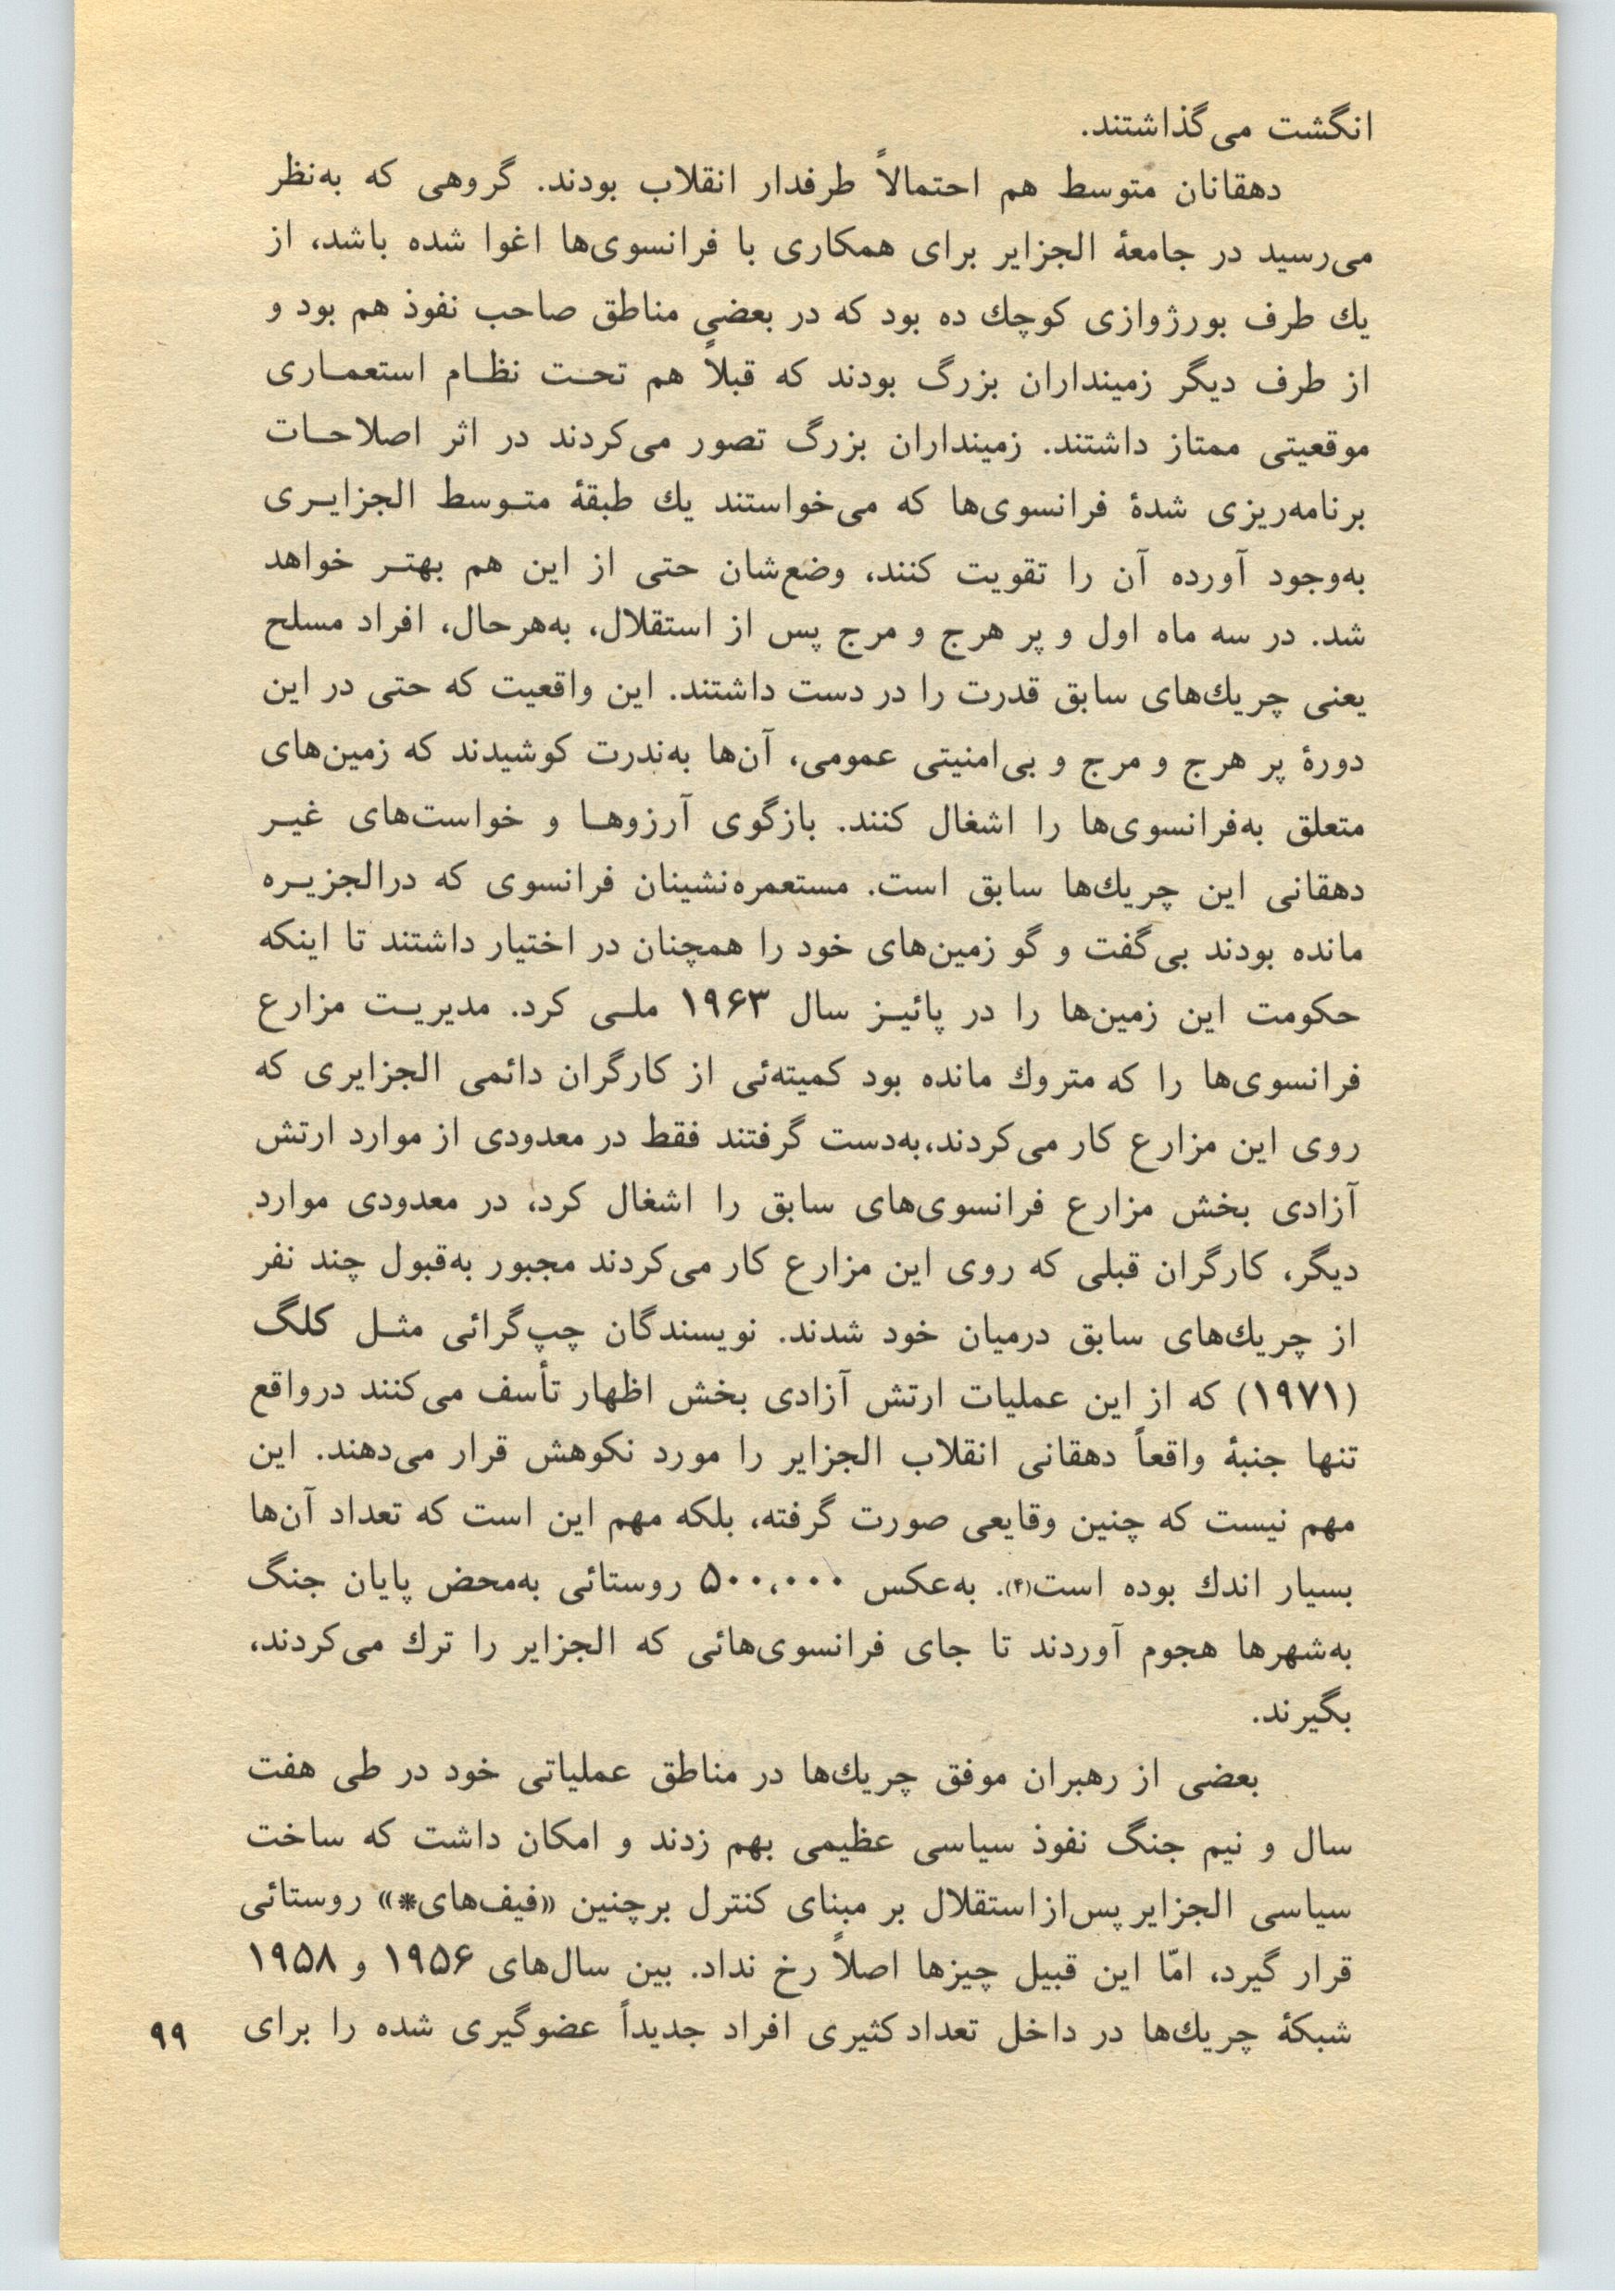 انگشت می‌گذاشتند.
دهقانان متوسط هم احتمالاً طرفدار انقلاب بودند. گروهی که به‌نظر
می‌رسید در جامعهٔ الجزایر برای همکاری با فرانسوی‌ها اغوا شده باشد، از
یك طرف بورژوازی کوچك ده بود که در بعضی مناطق صاحب نفوذ هم بود و
از طرف دیگر زمینداران بزرگ بودند که قبلاً هم تحت نظام استعماری
موقعیتی ممتاز داشتند. زمینداران بزرگ تصور می‌کردند در اثر اصلاحات
برنامه‌ریزی شدهٔ فرانسوی‌ها که می‌خواستند یك طبقهٔ متوسط الجزایری
به‌وجود آورده آن را تقویت کنند، وضع‌شان حتی از این هم بهتر خواهد
شد. در سه ماه اول و پر هرج و مرج پس از استقلال، به‌هرحال، افراد مسلح
یعنی چریك‌های سابق قدرت را در دست داشتند. این واقعیت که حتی در این
دورهٔ پر هرج و مرج و بی‌امنیتی عمومی، آن‌ها به‌ندرت کوشیدند که زمین‌های
متعلق به‌فرانسوی‌ها را اشغال کنند. بازگوی آرزوها و خواست‌های غیر
دهقانی این چریك‌ها سابق است. مستعمره‌نشینان فرانسوی که درالجزیره
مانده بودند بی‌گفت و گو زمین‌های خود را همچنان در اختیار داشتند تا اینکه
حکومت این زمین‌ها را در پائیز سال ۱۹۶۳ ملی کرد. مدیریت مزارع
فرانسوی‌ها را که متروك مانده بود کمیته‌ئی از کارگران دائمی الجزایری که
روی این مزارع کار می‌کردند،به‌دست گرفتند فقط در معدودی از موارد ارتش
آزادی بخش مزارع فرانسوی‌های سابق را اشغال کرد، در معدودی موارد
دیگر، کارگران قبلی که روی این مزارع کار می‌کردند مجبور به‌قبول چند نفر
از چریك‌های سابق درمیان خود شدند. نویسندگان چپ‌گرائی مثل کلگ
(۱۹۷۱) که از این عملیات ارتش آزادی بخش اظهار تأسف می‌کنند درواقع
تنها جنبهٔ واقعاً دهقانی انقلاب الجزایر را مورد نکوهش قرار می‌دهند. این
مهم نیست که چنین وقایعی صورت گرفته، بلکه مهم این است که تعداد آن‌ها
بسیار اندك بوده است(۴). به‌عکس ۵۰۰،۰۰۰ روستائی به‌محض پایان جنگ
به‌شهرها هجوم آوردند تا جای فرانسوی‌هائی که الجزایر را ترك می‌کردند،
بگیرند.
بعضی از رهبران موفق چریك‌ها در مناطق عملیاتی خود در طی هفت
سال و نیم جنگ نفوذ سیاسی عظیمی بهم زدند و امکان داشت که ساخت
سیاسی الجزایر پس‌ازاستقلال بر مبنای کنترل برچنین «فیف‌های*» روستائی
قرار گیرد، امّا این قبیل چیزها اصلاً رخ نداد. بین سال‌های ۱۹۵۶ و ۱۹۵۸
شبکهٔ چریك‌ها در داخل تعداد کثیری افراد جدیداً عضوگیری شده را برای
۹۹